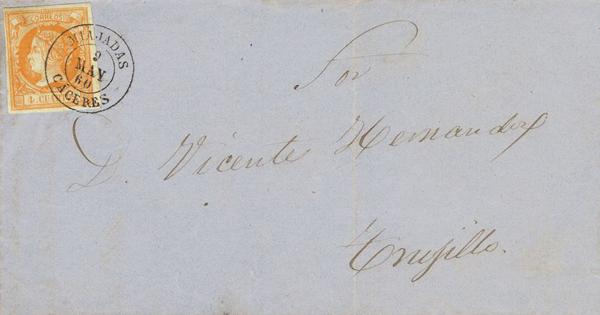 CORREOS
4 CU
MIAJADAS
9
MAY
60
CACERES
Sor
D. Vicente Hernandez
Trujillo.